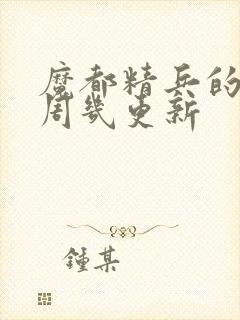 魔都精兵的
周几更新
鍾某